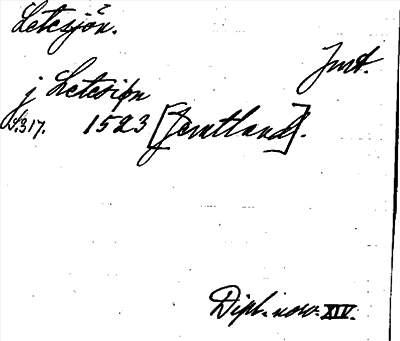 Letesjön.
Jmt.
j Letesiøn
s.317. 1523 [Jemtland].
Dipl. norv. XIV.